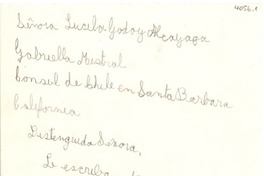 4056.1
Señora Lucila Godoy Alcayaga
Gabriella Mistral
Consul de Chile en Santa Barbara
California
Distenguida Señora,
Le escriba